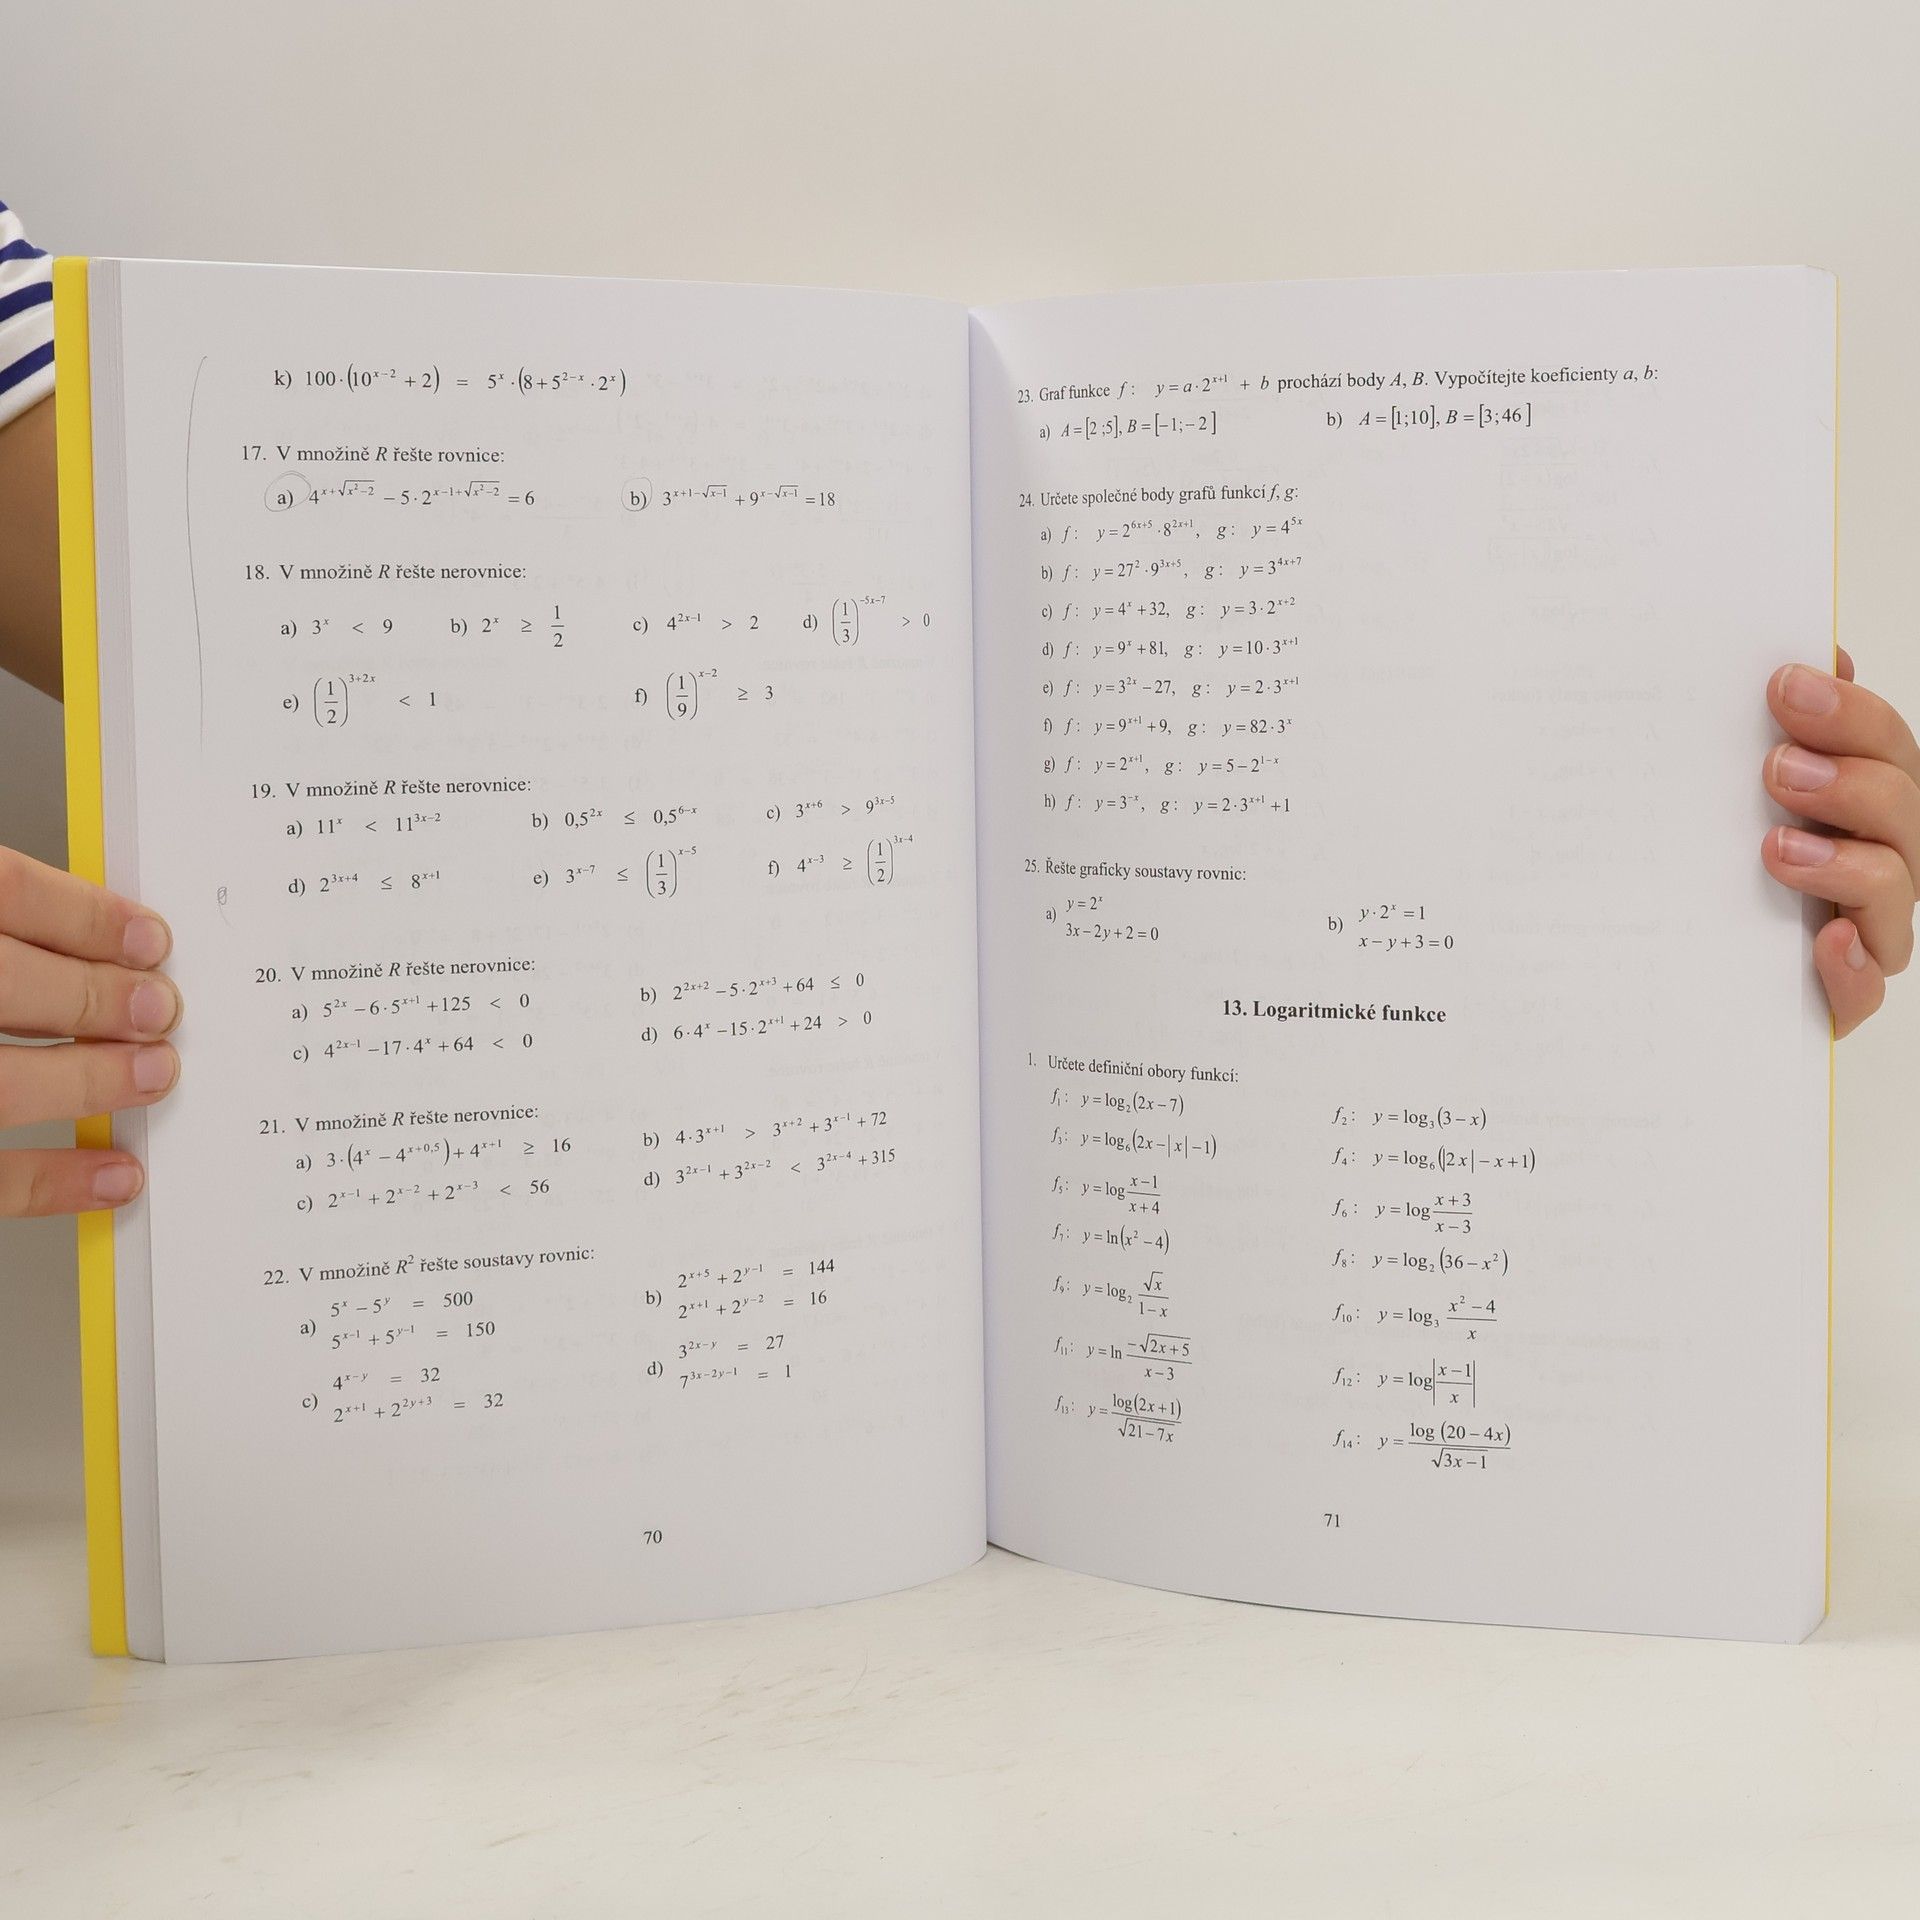 k) 100·(10^{x−2} + 2) = 5^x·(8 + 5^{2−x}·2^x)
17. V množině R řešte rovnice:
a) 4^{x+√(x²−2)} − 5·2^{x−1+√(x²−2)} = 6 b) 3^{x+1−√(x−1)} + 9^{x−√(x−1)} = 18
18. V množině R řešte nerovnice:
a) 3^x < 9 b) 2^x ≥ 1/2 c) 4^{2x−1} > 2 d) (1/3)^{−5x−7} > 0
e) (1/2)^{3+2x} < 1 f) (1/9)^{x−2} ≥ 3
19. V množině R řešte nerovnice:
a) 11^x < 11^{3x−2} b) 0,5^{2x} ≤ 0,5^{6−x} c) 3^{x+6} > 9^{3x−5}
d) 2^{3x+4} ≤ 8^{x+1} e) 3^{x−7} ≤ (1/3)^{x−5} f) 4^{x−3} ≥ (1/2)^{3x−4}
20. V množině R řešte nerovnice:
a) 5^{2x} − 6·5^{x+1} + 125 < 0 b) 2^{2x+2} − 5·2^{x+3} + 64 ≤ 0
c) 4^{2x−1} − 17·4^x + 64 < 0 d) 6·4^x − 15·2^{x+1} + 24 > 0
21. V množině R řešte nerovnice:
a) 3·(4^x − 4^{x+0,5}) + 4^{x+1} ≥ 16 b) 4·3^{x+1} > 3^{x+2} + 3^{x−1} + 72
c) 2^{x−1} + 2^{x−2} + 2^{x−3} < 56 d) 3^{2x−1} + 3^{2x−2} < 3^{2x−4} + 315
22. V množině R² řešte soustavy rovnic:
a) 5^x − 5^y = 500
5^{x−1} + 5^{y−1} = 150
b) 2^{x+5} + 2^{y−1} = 144
2^{x+1} + 2^{y−2} = 16
c) 4^{x−y} = 32
2^{x+1} + 2^{2y+3} = 32
d) 3^{2x−y} = 27
7^{3x−2y−1} = 1
70
23. Graf funkce f: y = a·2^{x+1} + b prochází body A, B. Vypočítejte koeficienty a, b:
a) A = [2;5], B = [−1;−2] b) A = [1;10], B = [3;46]
24. Určete společné body grafů funkcí f, g:
a) f: y = 2^{6x+5}·8^{2x+1}, g: y = 4^{5x}
b) f: y = 27²·9^{3x+5}, g: y = 3^{4x+7}
c) f: y = 4^x + 32, g: y = 3·2^{x+2}
d) f: y = 9^x + 81, g: y = 10·3^{x+1}
e) f: y = 3^{2x} − 27, g: y = 2·3^{x+1}
f) f: y = 9^{x+1} + 9, g: y = 82·3^x
g) f: y = 2^{x+1}, g: y = 5 − 2^{1−x}
h) f: y = 3^{−x}, g: y = 2·3^{x+1} + 1
25. Řešte graficky soustavy rovnic:
a) y = 2^x
3x − 2y + 2 = 0
b) y·2^x = 1
x − y + 3 = 0
13. Logaritmické funkce
1. Určete definiční obory funkcí:
f₁: y = log₂(2x − 7) f₂: y = log₃(3 − x)
f₃: y = log₆(2x − |x| − 1) f₄: y = log₆(|2x| − x + 1)
f₅: y = log (x − 1)/(x + 4) f₆: y = log (x + 3)/(x − 3)
f₇: y = ln(x² − 4) f₈: y = log₂(36 − x²)
f₉: y = log₂ √x/(1 − x) f₁₀: y = log₃ (x² − 4)/x
f₁₁: y = ln −√(2x + 5)/(x − 3) f₁₂: y = log |(x − 1)/x|
f₁₃: y = log(2x + 1)/√(21 − 7x) f₁₄: y = log (20 − 4x)/√(3x − 1)
71